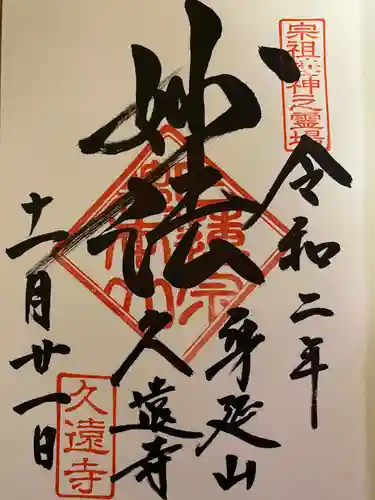 宗祖棲神之霊場
令和二年
身延山
妙法
久遠寺
十一月廿一日
久遠寺